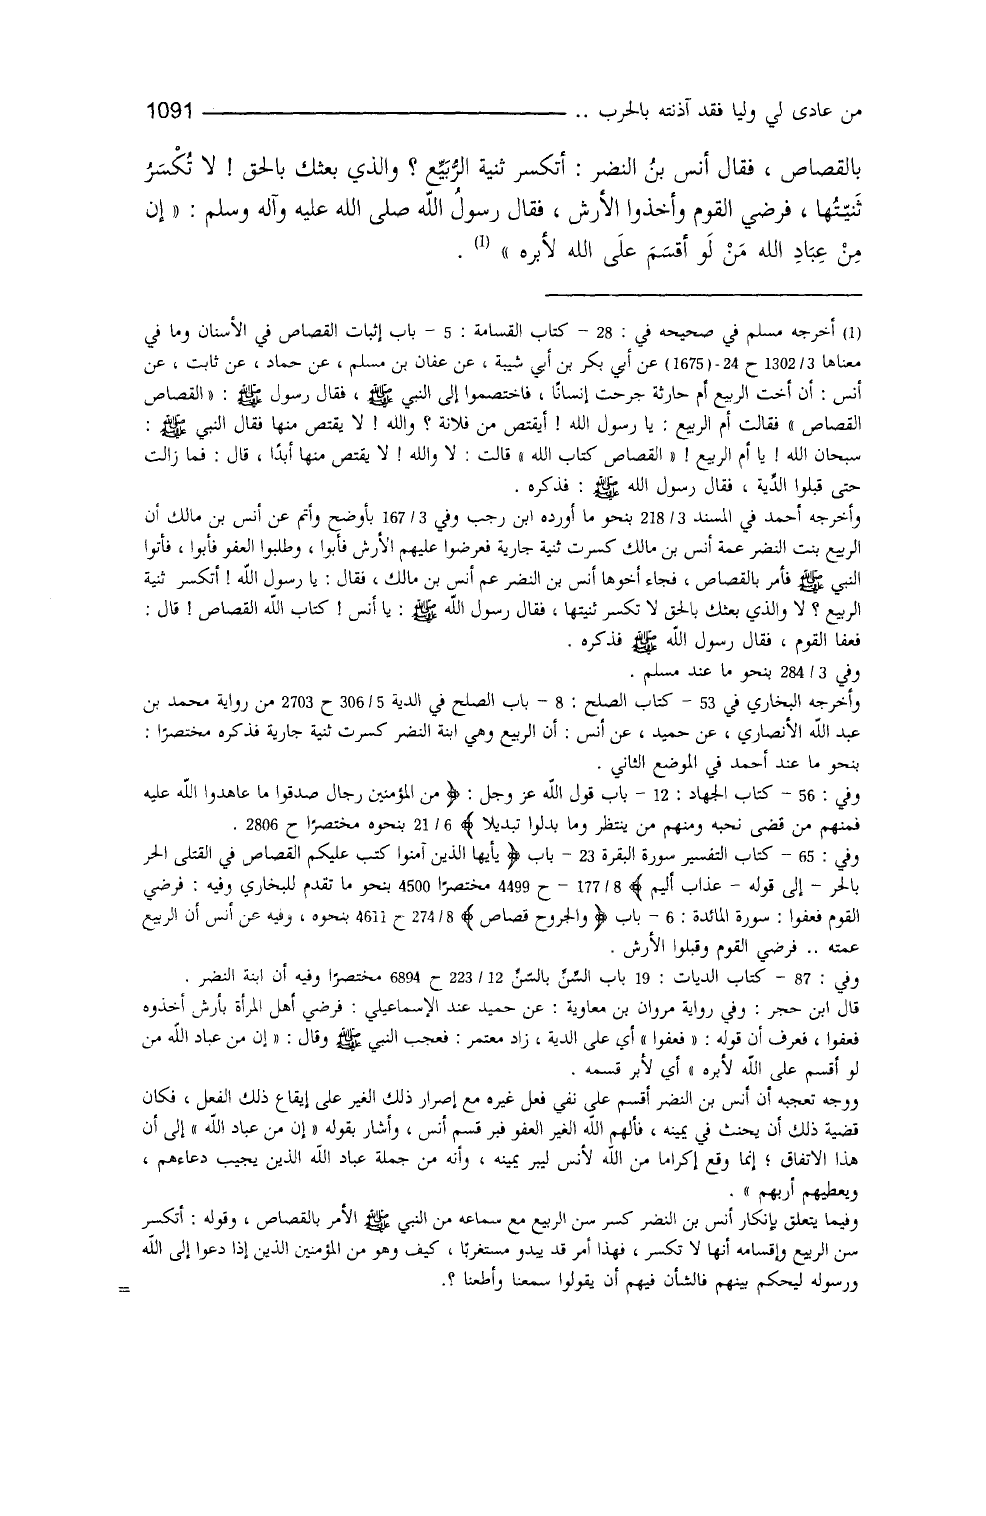 من عادى لي وليا فقد آذنته بالحرب .. ــــــــــــــــــــــــ 1091
بالقصاص ، فقال أنس بنُ النضر : أتكسر ثنية الرُّبَيِّع ؟ والذي بعثك بالحق ! لا تُكْسَرُ
ثَنيّتُها ، فرضي القوم وأخذوا الأرش ، فقال رسولُ الله صلى الله عليه وآله وسلم : « إن
مِنْ عِبَادِ الله مَنْ لَو أقسَمَ علَى الله لأبره » (1) .
(1) أخرجه مسلم في صحيحه في : 28 – كتاب القسامة : 5 – باب إثبات القصاص في الأسنان وما في
معناها 3/ 1302 ح 24-(1675) عن أبي بكر بن أبي شيبة ، عن عفان بن مسلم ، عن حماد ، عن ثابت ، عن
أنس : أن أخت الربيع أم حارثة جرحت إنسانًا ، فاختصموا إلى النبي ﷺ ، فقال رسول ﷺ : «القصاص
القصاص » فقالت أم الربيع : يا رسول الله ! أيقتص من فلانة ؟ والله ! لا يقتص منها فقال النبي ﷺ :
سبحان الله ! يا أم الربيع ! « القصاص كتاب الله » قالت : لا والله ! لا يقتص منها أبدًا ، قال : فما زالت
حتى قبلوا الدِّية ، فقال رسول الله ﷺ : فذكره .
وأخرجه أحمد في المسند 3/ 218 بنحو ما أورده ابن رجب وفي 3/ 167 بأوضح وأتم عن أنس بن مالك أن
الربيع بنت النضر عمة أنس بن مالك كسرت ثنية جارية فعرضوا عليهم الأرش فأبوا ، وطلبوا العفو فأبوا ، فأتوا
النبي ﷺ فأمر بالقصاص ، فجاء أخوها أنس بن النضر عم أنس بن مالك ، فقال : يا رسول الله ! أتكسر ثنية
الربيع ؟ لا والذي بعثك بالحق لا تكسر ثنيتها ، فقال رسول الله ﷺ : يا أنس ! كتاب الله القصاص ! قال :
فعفا القوم ، فقال رسول الله ﷺ فذكره .
وفي 3/ 284 بنحو ما عند مسلم .
وأخرجه البخاري في 53 – كتاب الصلح : 8 – باب الصلح في الدية 5/ 306 ح 2703 من رواية محمد بن
عبد الله الأنصاري ، عن حميد ، عن أنس : أن الربيع وهي ابنة النضر كسرت ثنية جارية فذكره مختصرًا :
بنحو ما عند أحمد في الموضع الثاني .
وفي : 56 – كتاب الجهاد : 12 – باب قول الله عز وجل : ﴿ من المؤمنين رجال صدقوا ما عاهدوا الله عليه
فمنهم من قضى نحبه ومنهم من ينتظر وما بدلوا تبديلا ﴾ 6/ 21 بنحوه مختصرًا ح 2806 .
وفي : 65 – كتاب التفسير سورة البقرة 23 – باب ﴿ يأيها الذين آمنوا كتب عليكم القصاص في القتلى الحر
بالحر – إلى قوله – عذاب أليم ﴾ 8/ 177 – ح 4499 مختصرًا 4500 بنحو ما تقدم للبخاري وفيه : فرضي
القوم فعفوا : سورة المائدة : 6 – باب ﴿ والجروح قصاص ﴾ 8/ 274 ح 4611 بنحوه ، وفيه عن أنس أن الربيع
عمته .. فرضي القوم وقبلوا الأرش .
وفي : 87 – كتاب الديات : 19 باب السِّنِّ بالسّنِّ 12/ 223 ح 6894 مختصرًا وفيه أن ابنة النضر .
قال ابن حجر : وفي رواية مروان بن معاوية : عن حميد عند الإسماعيلي : فرضي أهل المرأة بأرش أخذوه
فعفوا ، فعرف أن قوله : « فعفوا » أي على الدية ، زاد معتمر : فعجب النبي ﷺ وقال : « إن من عباد الله من
لو أقسم على الله لأبره » أي لأبر قسمه .
ووجه تعجبه أن أنس بن النضر أقسم على نفي فعل غيره مع إصرار ذلك الغير على إيقاع ذلك الفعل ، فكان
قضية ذلك أن يحنث في يمينه ، فألهم الله الغير العفو فبر قسم أنس ، وأشار بقوله « إن من عباد الله » إلى أن
هذا الاتفاق ؛ إنما وقع إكراما من الله لأنس ليبر يمينه ، وأنه من جملة عباد الله الذين يجيب دعاءهم ،
ويعطيهم أربهم » .
وفيما يتعلق بإنكار أنس بن النضر كسر سن الربيع مع سماعه من النبي ﷺ الأمر بالقصاص ، وقوله : أتكسر
سن الربيع وإقسامه أنها لا تكسر ، فهذا أمر قد يبدو مستغربًا ، كيف وهو من المؤمنين الذين إذا دعوا إلى الله
ورسوله ليحكم بينهم فالشأن فيهم أن يقولوا سمعنا وأطعنا ؟.
=